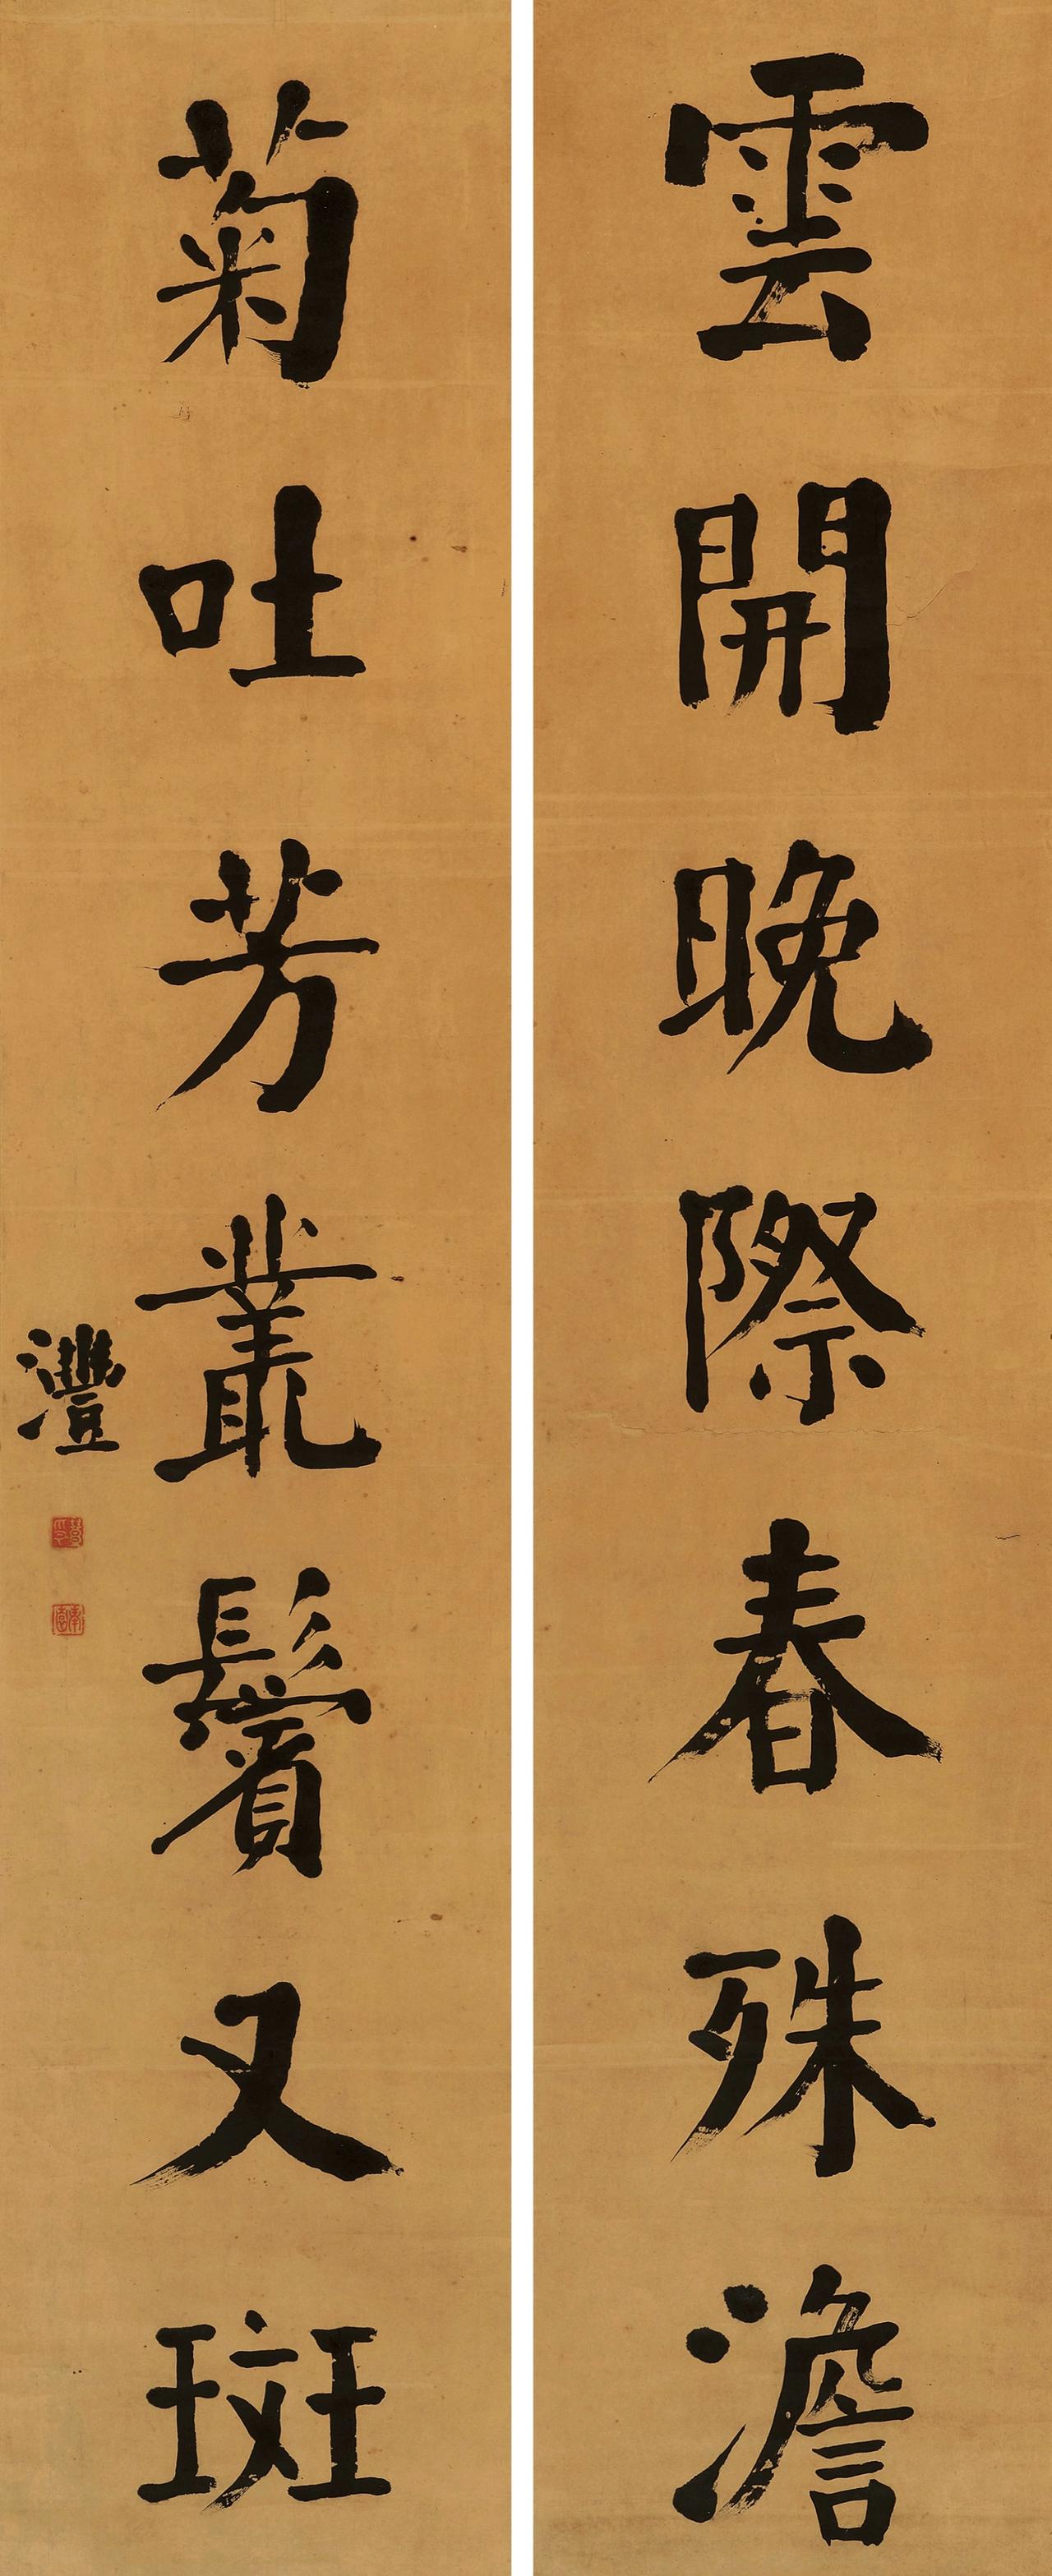 雲開晚際春殊澹
菊吐芳叢鬢又斑
灃